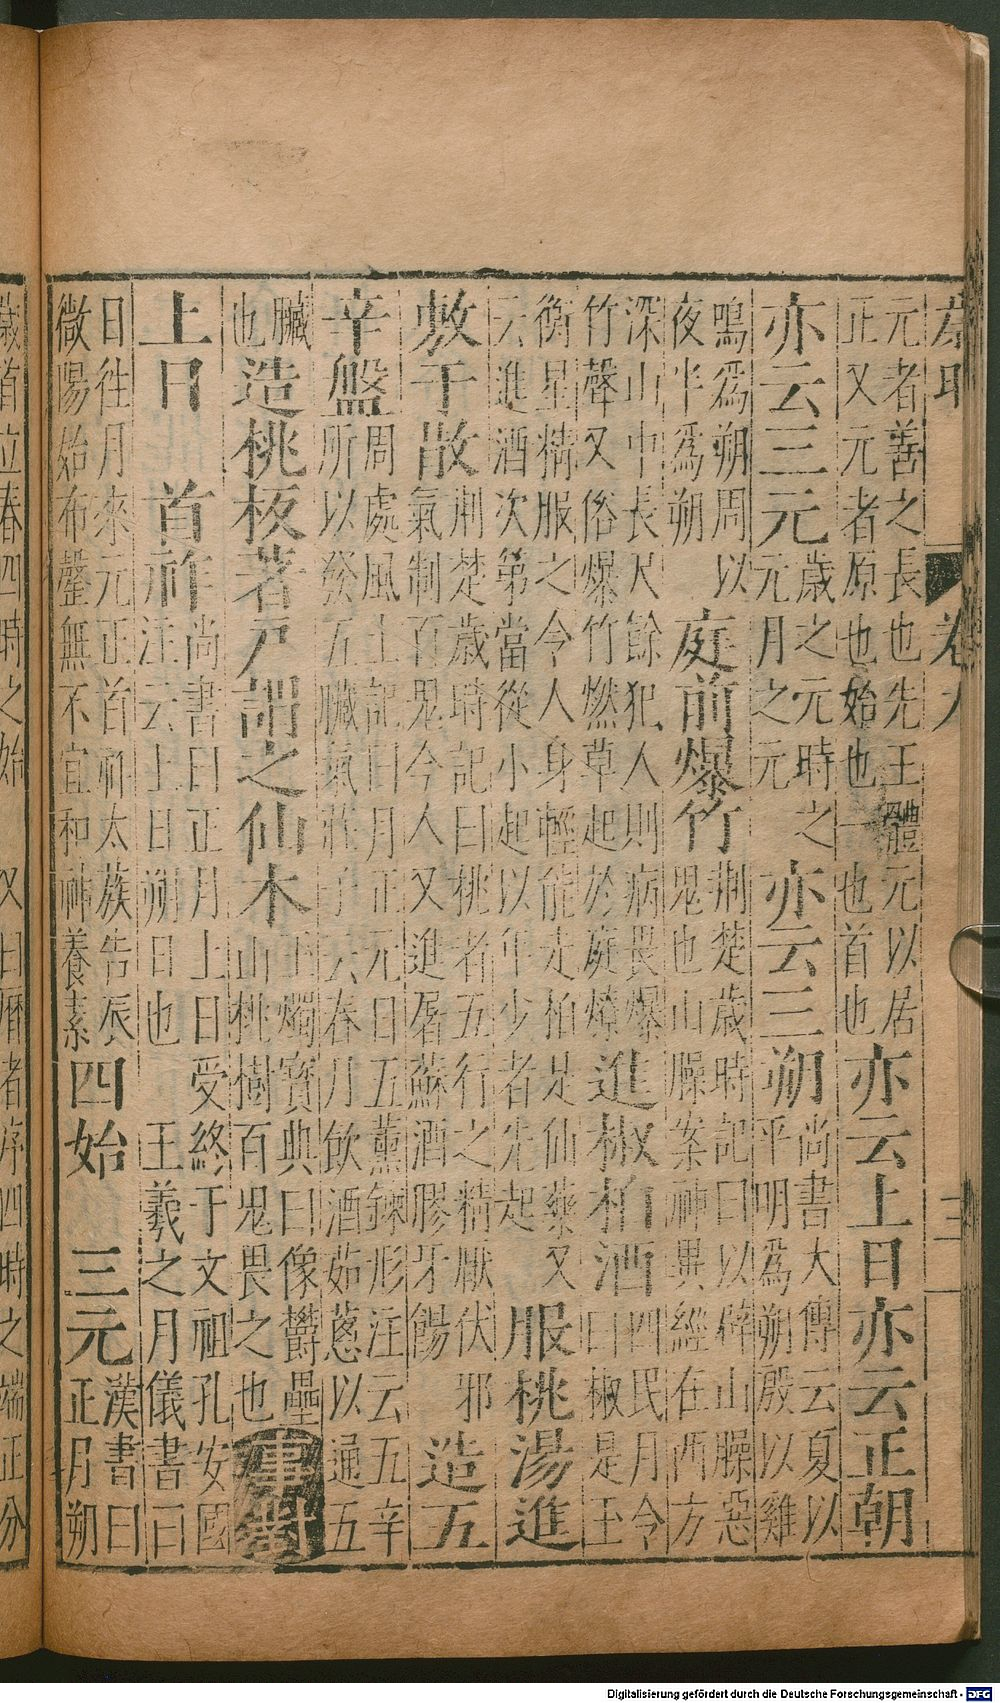 元者善之長也先王體元以居正又元者原也始也一也首也亦云上日亦云正朝
亦云三元歲之元時之元月之元亦云三朔尚書大傳云夏以平明爲朔殷以雞
鳴爲朔周以夜半爲朔庭前爆竹荆楚歲時記曰以辟山臊惡鬼也山臊案神異經在西方
深山中長尺餘犯人則病畏爆竹聲又俗爆竹燃草起於庭燎進椒柏酒四民月令曰椒是玉
衡星精服之令人身輕能走柏是仙藥又云進酒次第當從小起以年少者先起服桃湯進
敷于散荆楚歲時記曰桃者五行之精厭伏邪氣制百鬼今人又進屠蘇酒膠牙餳造五
辛盤周處風土記曰月正元日五薰鍊形注云五辛所以發五臟氣莊子云春月飲酒茹蔥以通五
臟也造桃板著戶謂之仙木玉燭寶典曰像鬱壘山桃樹百鬼畏之也事對
上日 首祚尚書曰正月上日受終于文祖孔安國注云上日朔日也 王羲之月儀書曰
日往月來元正首祚太蔟告辰微陽始布罄無不宜和神養素四始 三元漢書曰正月朔
歲首立春四時之始 又曰曆者序四時之端正分
Digitalisierung gefördert durch die Deutsche Forschungsgemeinschaft - DFG